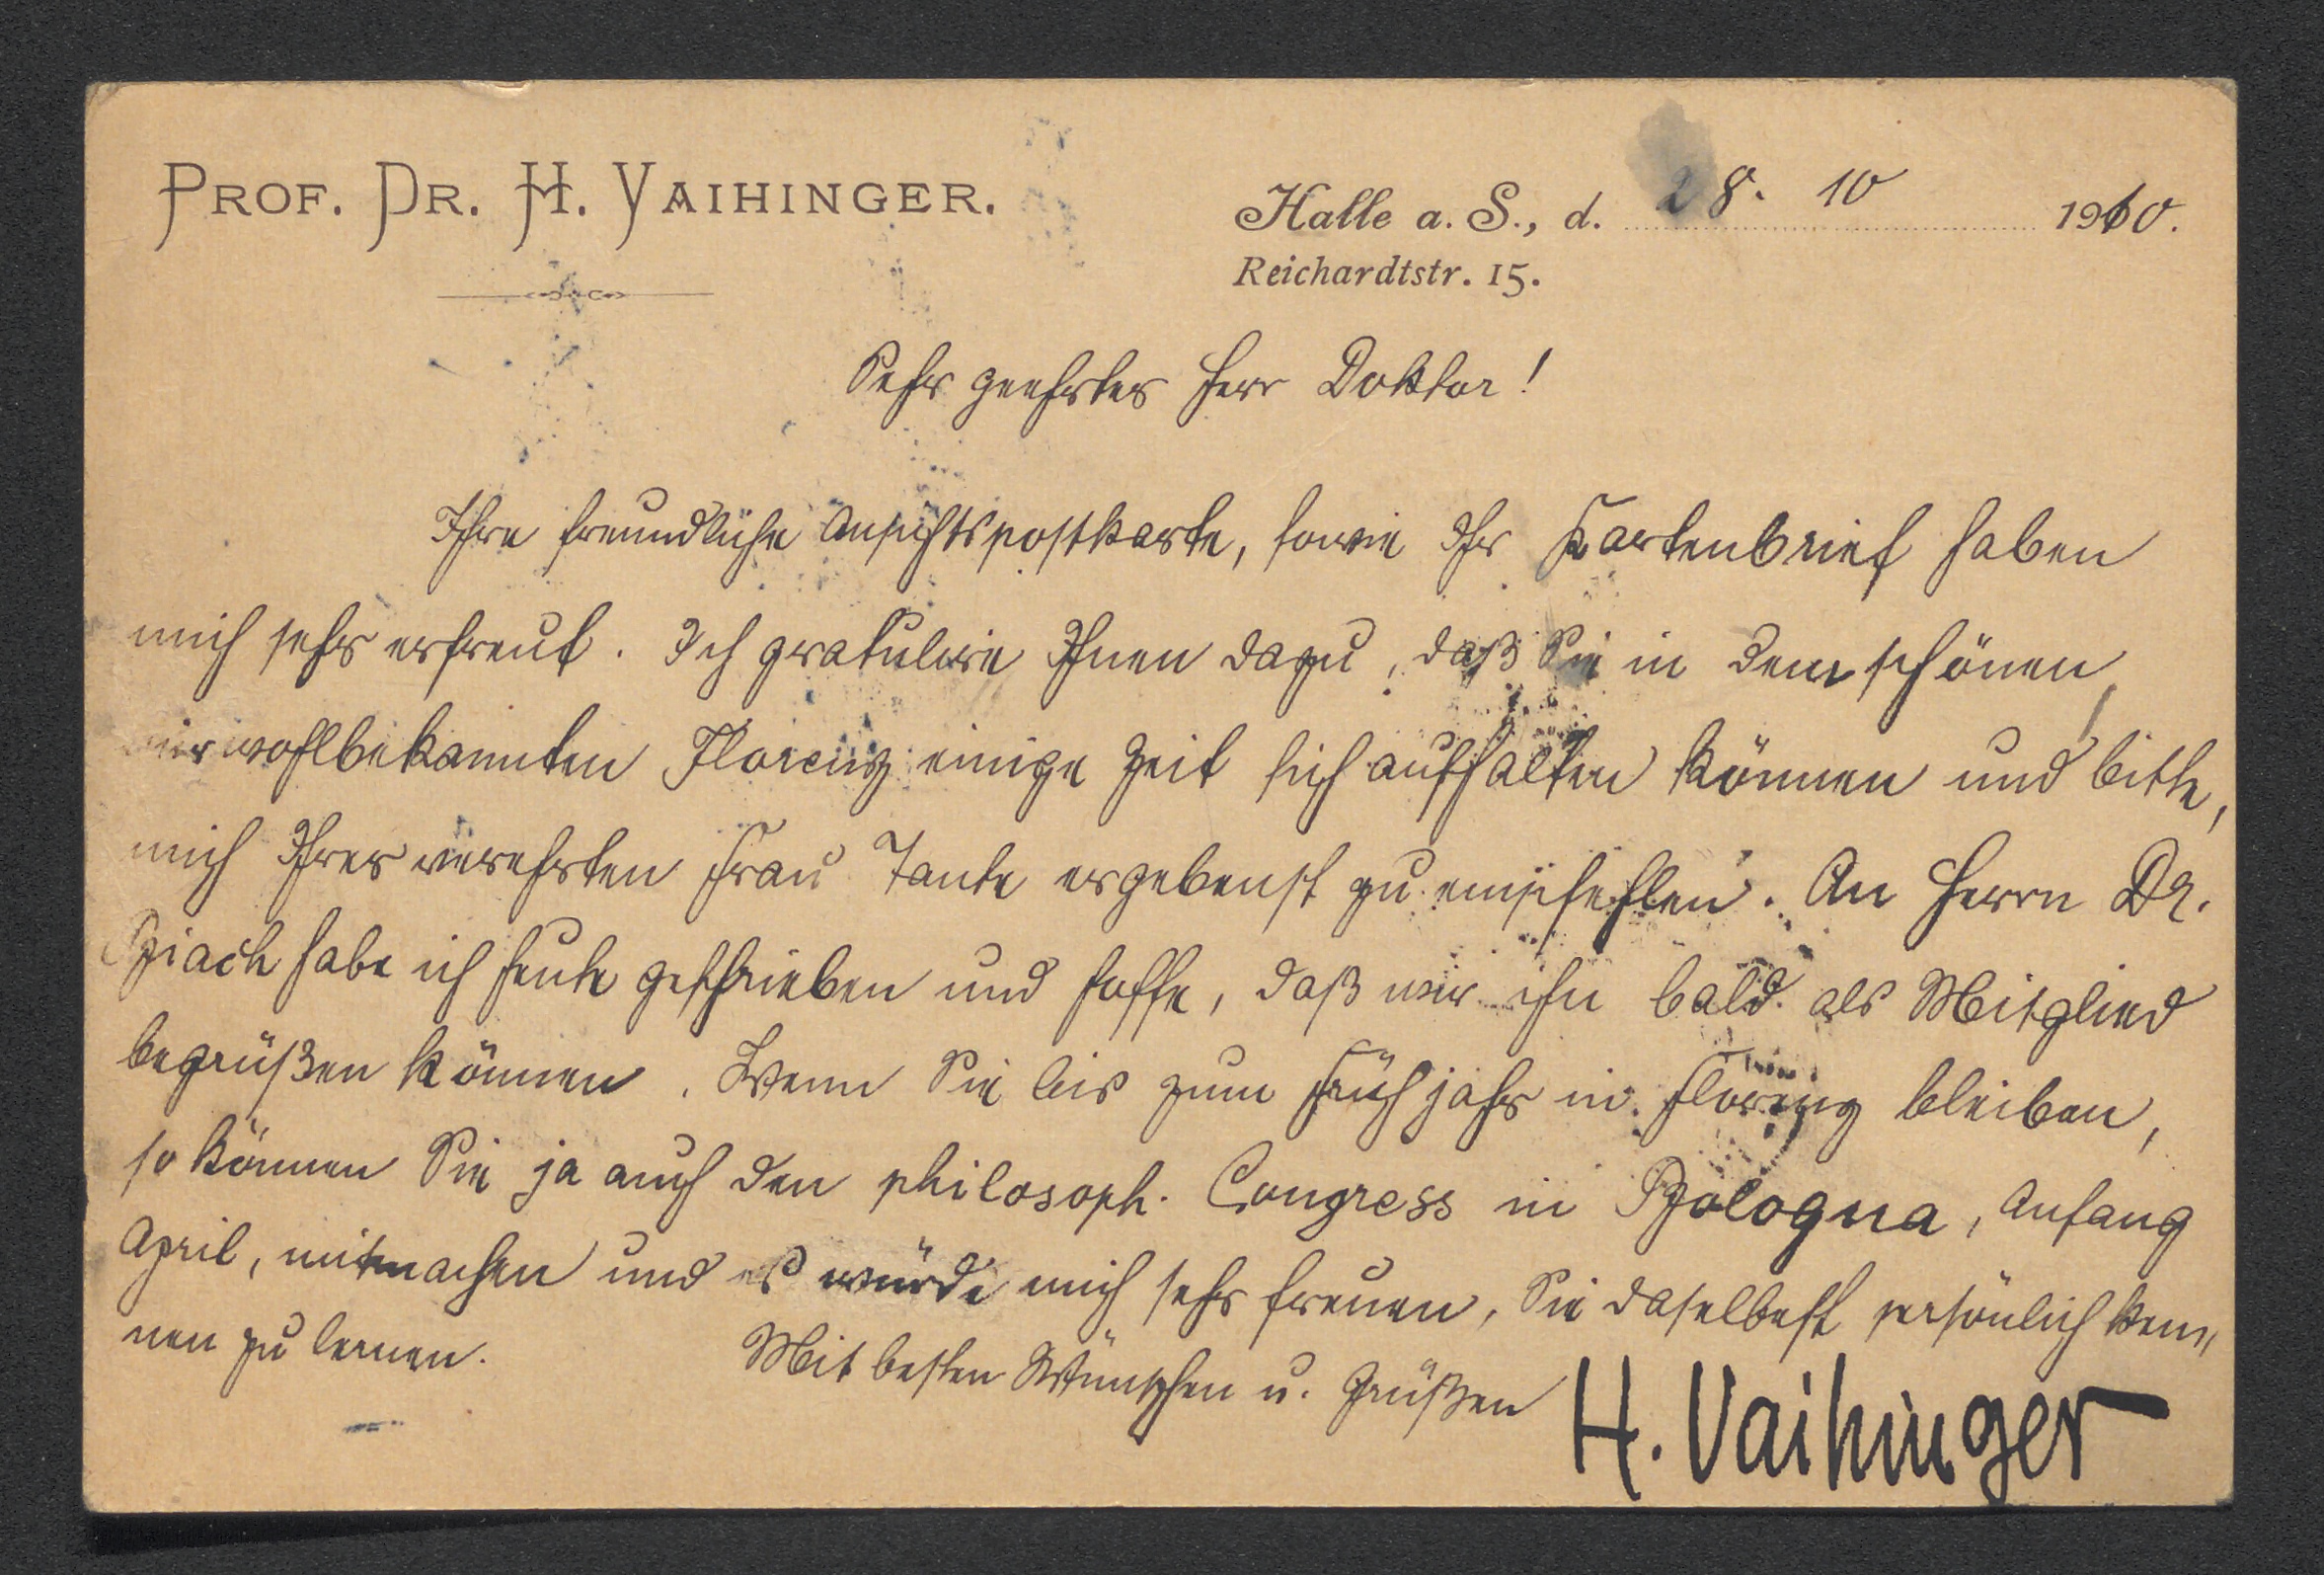 PROF. DR. H. VAIHINGER.
Halle a. S., d. 28. 10 1910.
Reichardtstr. 15.
Sehr geehrter Herr Doktor!
Ihre freundliche Ansichtspostkarte, sowie Ihr Kartenbrief haben
mich sehr erfreut. Ich gratuliere Ihnen dazu, daß Sie in dem schönen,
mir wohlbekannten Florenz einige Zeit sich aufhalten können und bitte,
mich Ihrer verehrten Frau Tante ergebenst zu empfehlen. An Herrn Dr.
habe ich heute geschrieben und hoffe, daß wir ihn bald als Mitglied
begrüßen können. Wenn Sie bis zum Frühjahr in Florenz bleiben,
so können Sie ja auch den philosoph. Congress in Bologna, Anfang
April, mitmachen und es würde mich sehr freuen, Sie daselbst persönlich ken„
nen zu lernen.
Mit besten Wünschen u. Grüßen
H. Vaihinger